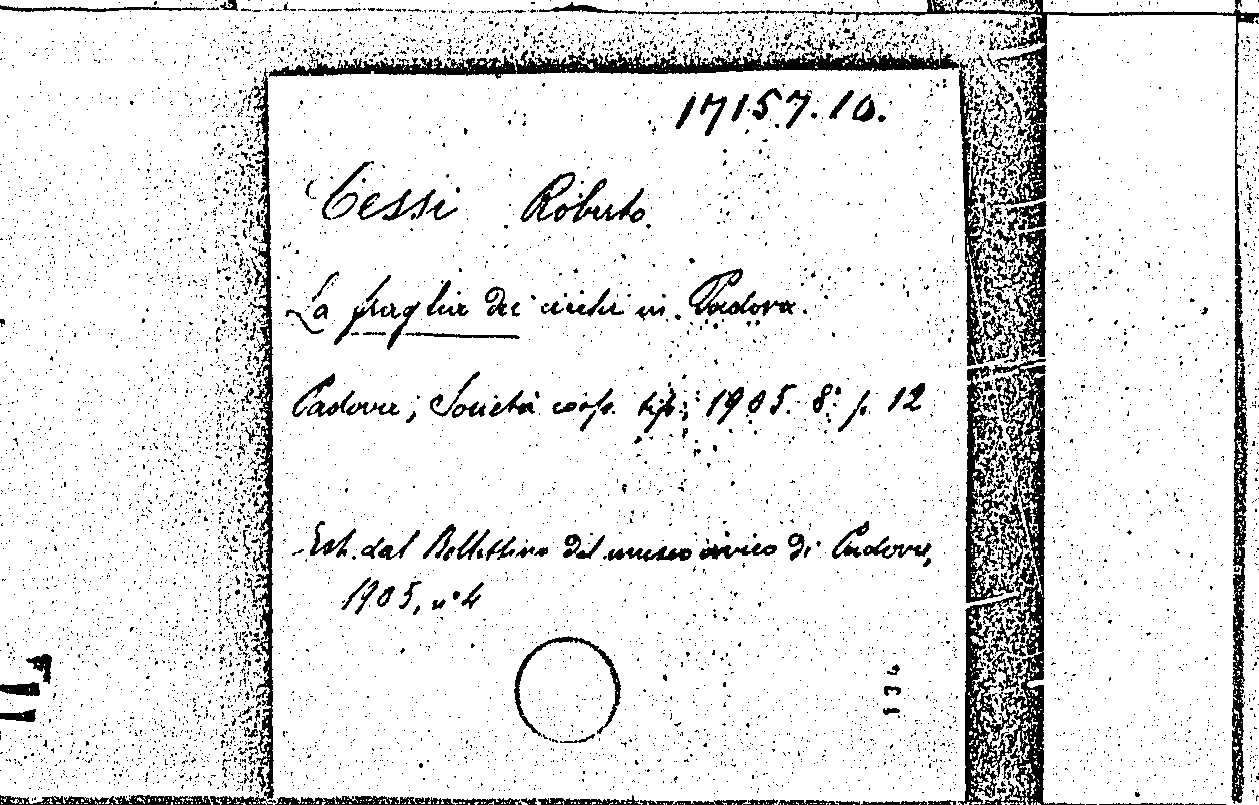 17157.10.
Cessi Roberto
La fraglia dei ciechi in Padova.
Padova, Società coop. tip., 1905. 8° p. 12
Estr. dal Bollettino del museo civico di Padova,
1905, n° 4
134